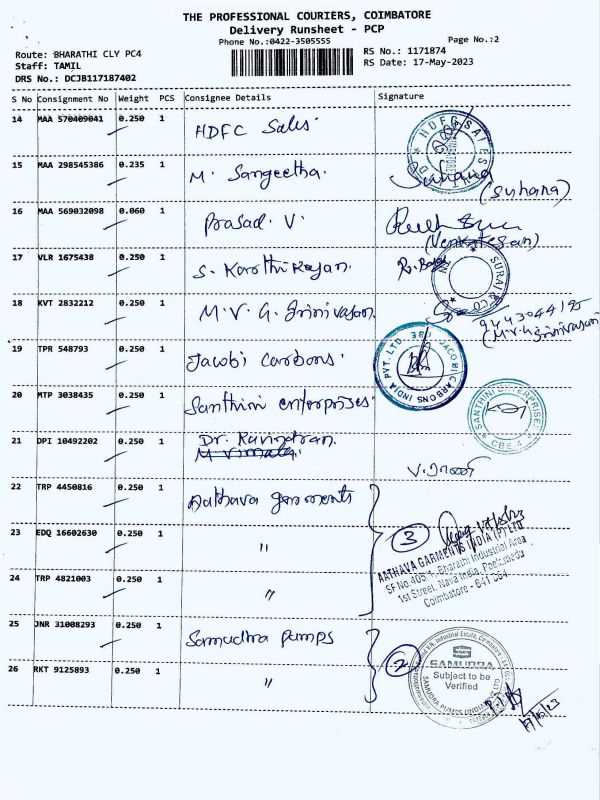 THE PROFESSIONAL COURIERS, COIMBATORE
Delivery Runsheet - PCP
Phone No.:0422-3505555
Page No.:2
Route: BHARATHI CLY PC4
Staff: TAMIL
DRS No.: DCJB117187402
RS No.: 1171874
RS Date: 17-May-2023
S No Consignment No Weight PCS Consignee Details Signature
14 MAA 570409041 0.250 1 HDFC Sales
HDFC SALES
15 MAA 298545386 0.235 1 M. Sangeetha.
Suhana
(Suhana)
16 MAA 569032098 0.060 1 Prasad. V.
(Venkatesan)
17 VLR 1675438 0.250 1 S. Karthikayan.
SURAJ & CO
18 KVT 2832212 0.250 1 M. V. G. Srinivasan.
(M.V.G Srinivasan)
19 TPR 548793 0.250 1 Jacobi Carbons.
JACOBI CARBONS INDIA PVT. LTD.
20 MTP 3038435 0.250 1 Santhini enterprises
SANTHINI ENTERPRISES
CBE-4
21 DPI 10492202 0.250 1 Dr. Ravindran.
M Vimala.
V. ராணி
22 TRP 4450816 0.250 1 Aathava garments
23 EDQ 16602630 0.250 1 "
3
AATHAVA GARMENTS INDIA (P) LTD
SF No.405-1, Bharathi Industrial Area
1st Street, Nava India, Peelamedu
Coimbatore - 641 004
24 TRP 4821003 0.250 1 "
25 JNR 31008293 0.250 1 Samudhra Pumps
2
SAMUDRA
Subject to be
Verified
SAMUDRA PUMPS (INDIA) PVT LTD
26 RKT 9125893 0.250 1 "